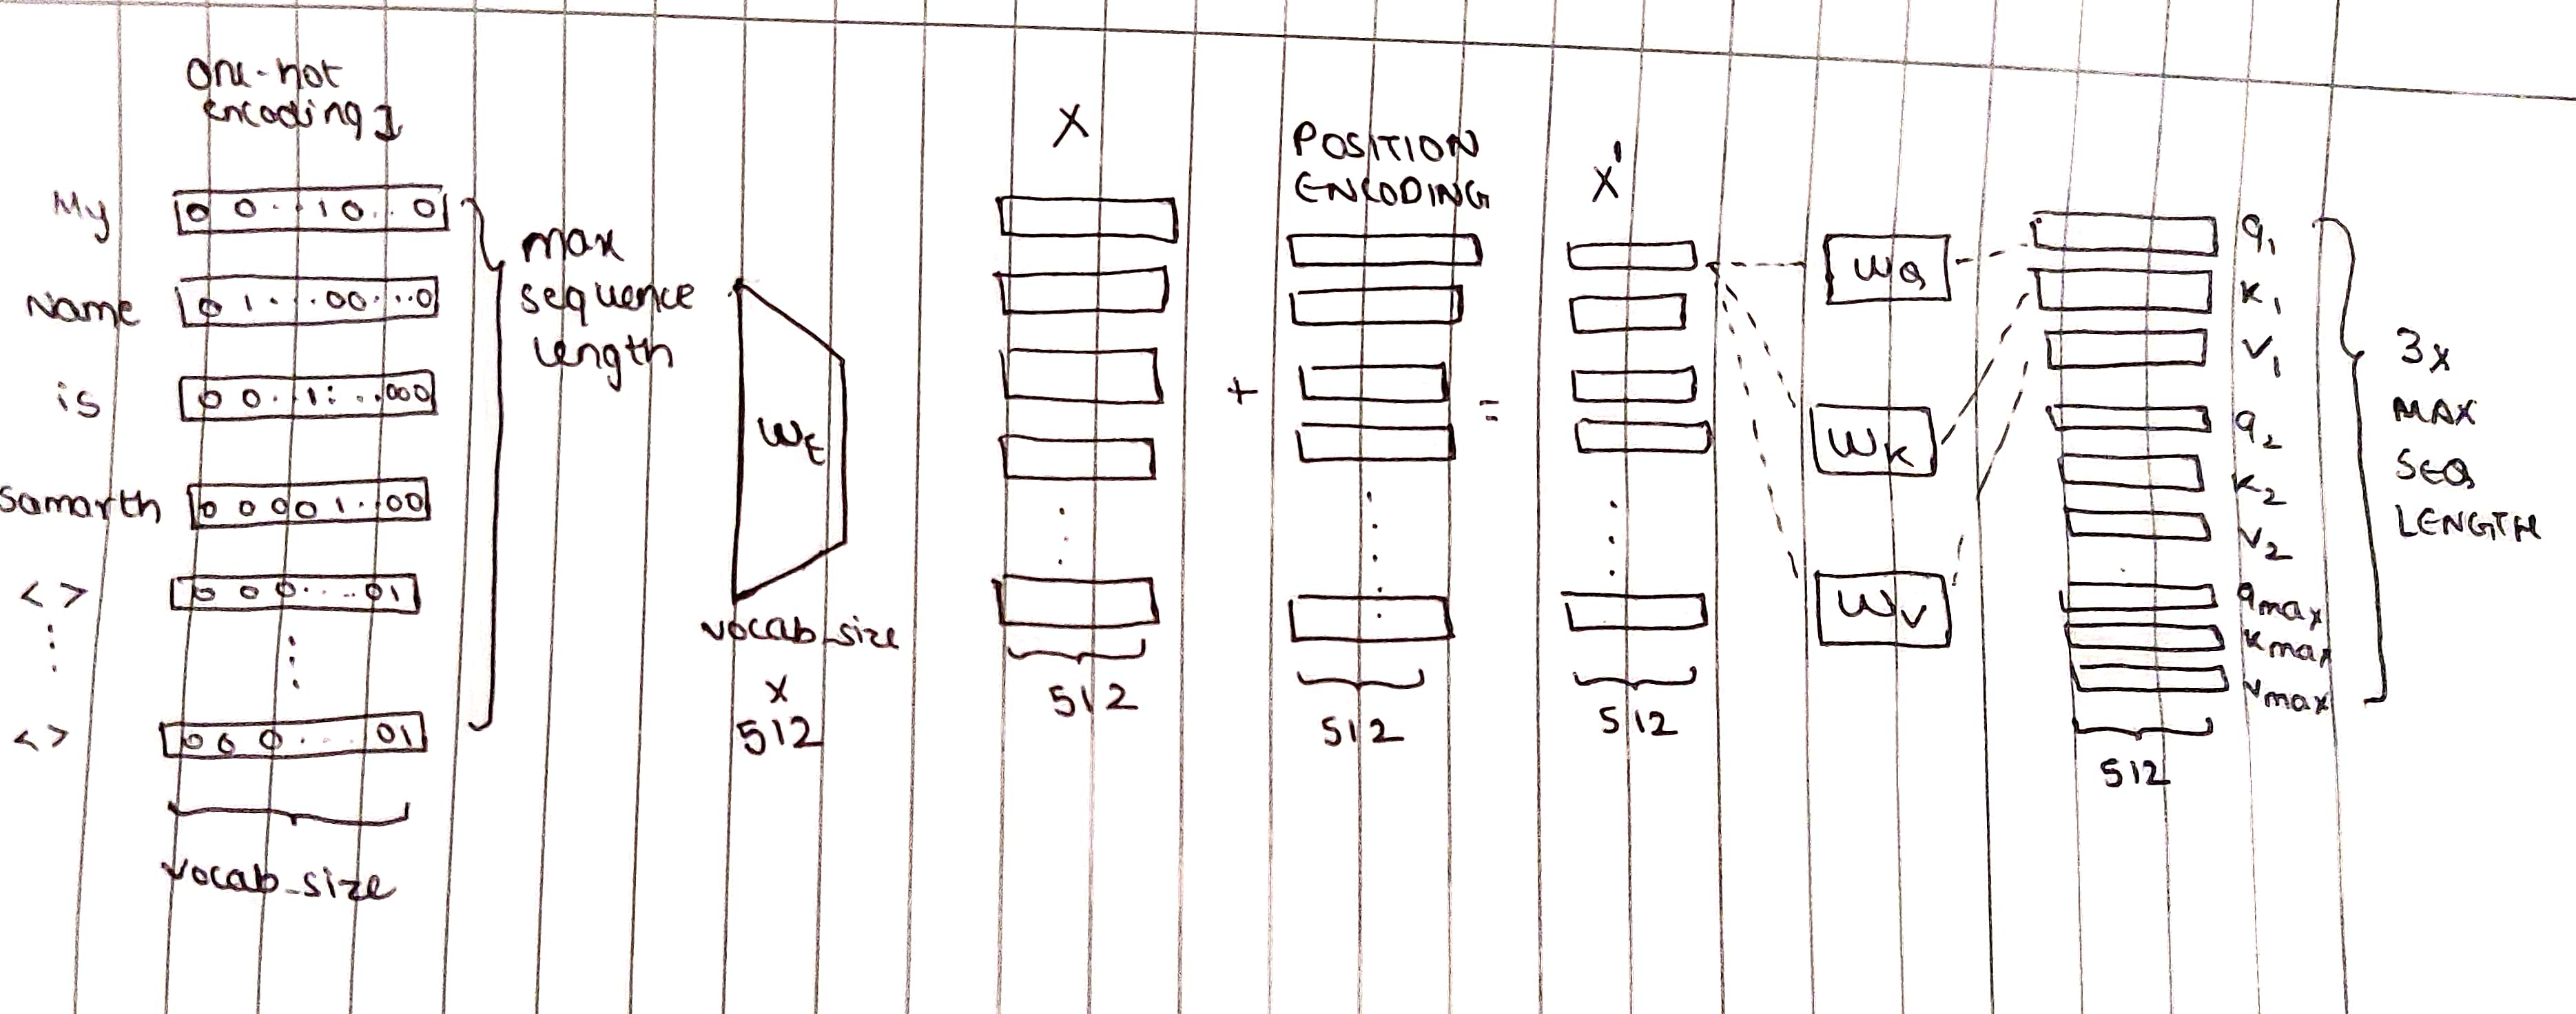 One-hot
encoding]
My
0 0 . . 1 0 . . 0
Name
0 1 . . . 00 . . . 0
is
0 0 . . 1 : . . 000
Samarth
0 0 0 0 1 . . 00
< >
0 0 0 . . . . 01
< >
0 0 0 . . . 01
vocab_size
max
sequence
length
Wt
vocab_size
x
512
X
512
+
POSITION
ENCODING
512
=
X'
512
WQ
WK
WV
q1
k1
v1
q2
k2
v2
qmax
kmax
vmax
512
3x
MAX
SEQ
LENGTH